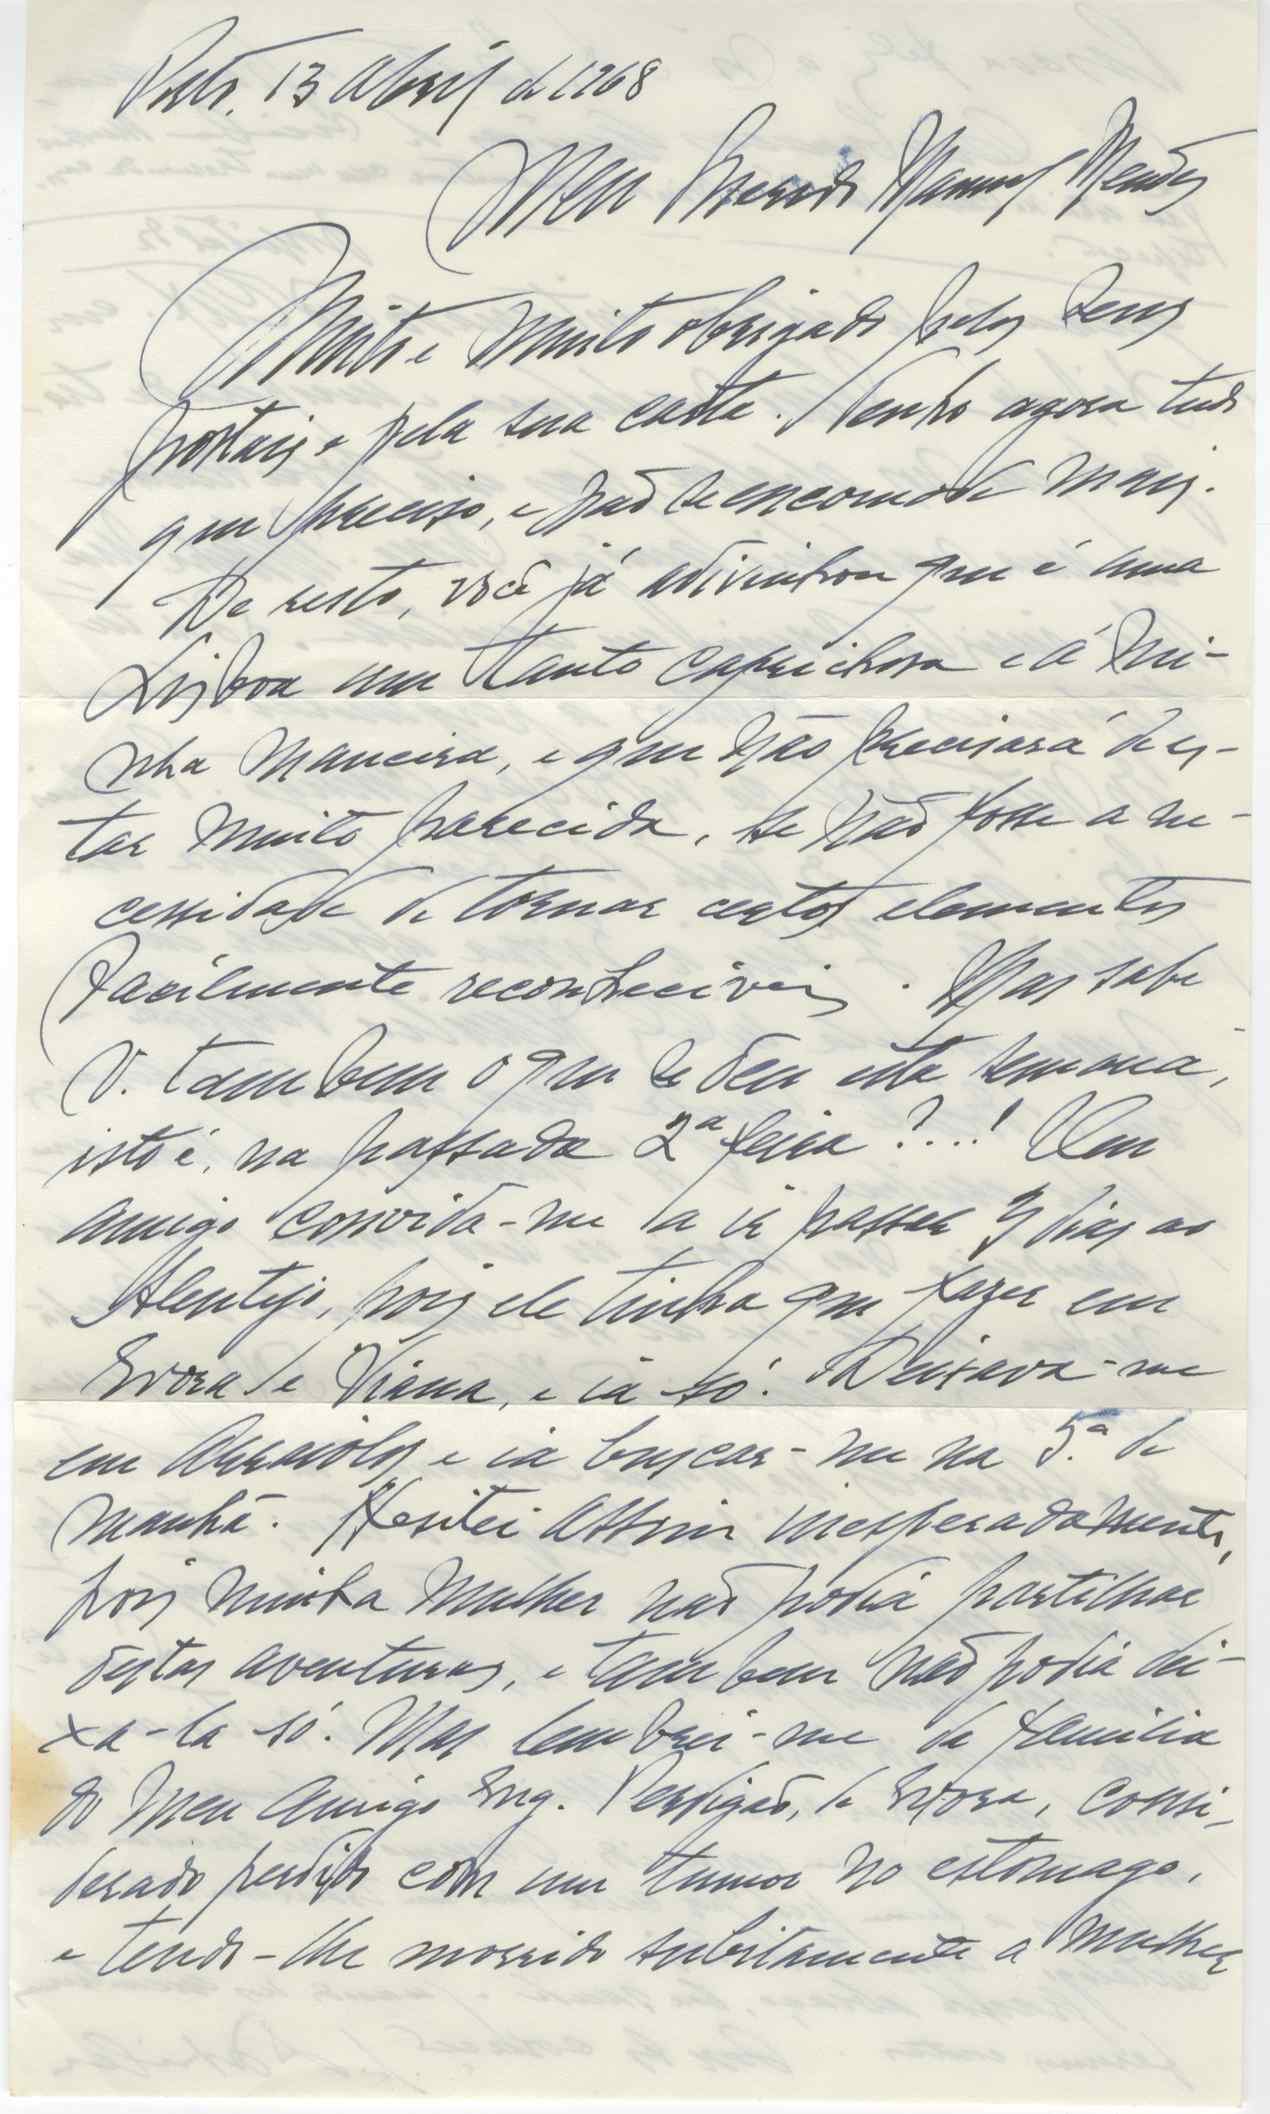 Porto, 13 Abril de 1968
Meu Prezado Manuel Mendes
Muito e muito obrigado pelos seus
postais e pela sua carta. Tenho agora tudo
que preciso, e não se encomode mais.
De resto, você já adivinhou que é uma
Lisboa um tanto caprichosa e á mi-
nha maneira, e que não precisará de es-
tar muito parecida, se não fosse a ne-
cessidade de tornar certos elementos
facilmente reconheciveis. Mas sabe
V. tambem o que se deu esta semana,
isto é, na passada 2ª feira?...! Um
amigo convida-me a ir passar 3 dias ao
Alentejo, pois ele tinha que fazer em
Evora e Viana, e ia só. Deixava-me
em Arraiolos e ia buscar-me na 5ª de
manhã. Hesitei assim inesperadamente,
pois minha Mulher não podia partilhar
destas aventuras, e tambem não podia dei-
xa-la só. Mas lembrei-me da familia
do meu amigo Eng. Perdigão, de Evora, consi-
derado perdido com um tumor no estomago,
e tendo-lhe morrido subitamente a mulher